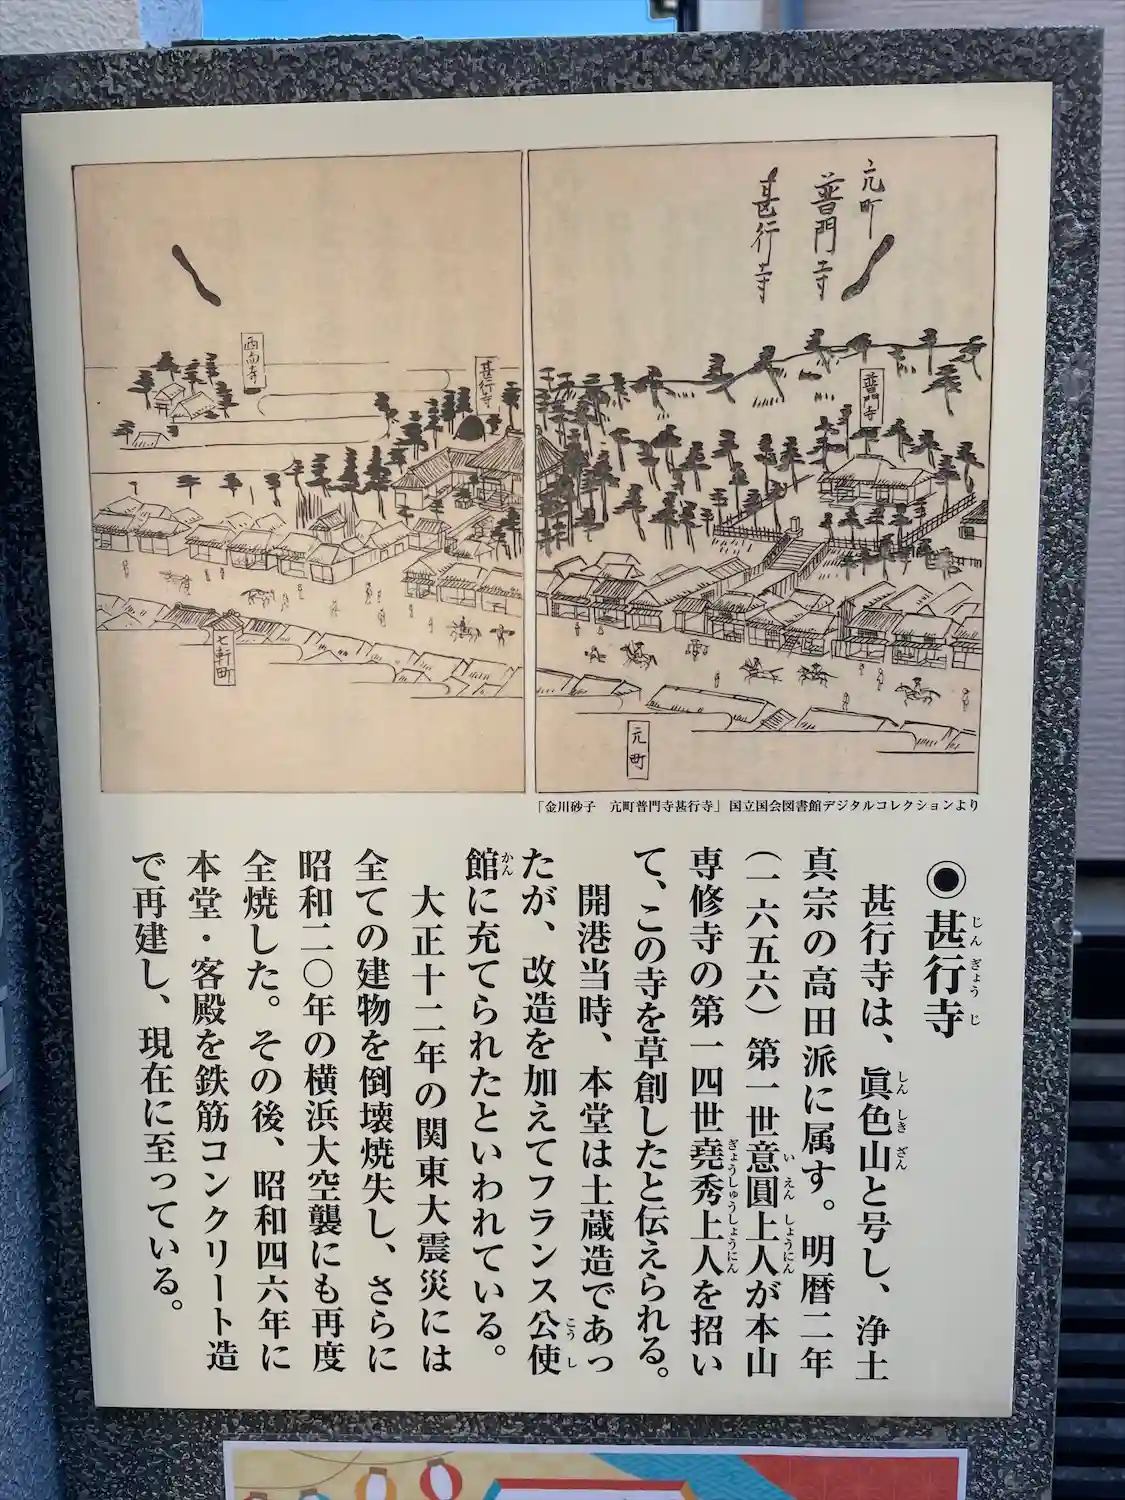 元町
普門寺
甚行寺
普門寺
甚行寺
西向寺
七軒町
元町
「金川砂子　元町普門寺甚行寺」国立国会図書館デジタルコレクションより
◉甚行寺
じんぎょうじ
甚行寺は、眞色山と号し、浄土
しんしきざん
真宗の高田派に属す。明暦二年
（一六五六）第一世意圓上人が本山
いえんしょうにん
専修寺の第一四世堯秀上人を招い
ぎょうしゅうしょうにん
て、この寺を草創したと伝えられる。
開港当時、本堂は土蔵造であっ
たが、改造を加えてフランス公使
こうし
館に充てられたといわれている。
かん
大正十二年の関東大震災には
全ての建物を倒壊焼失し、さらに
昭和二〇年の横浜大空襲にも再度
全焼した。その後、昭和四六年に
本堂・客殿を鉄筋コンクリート造
で再建し、現在に至っている。